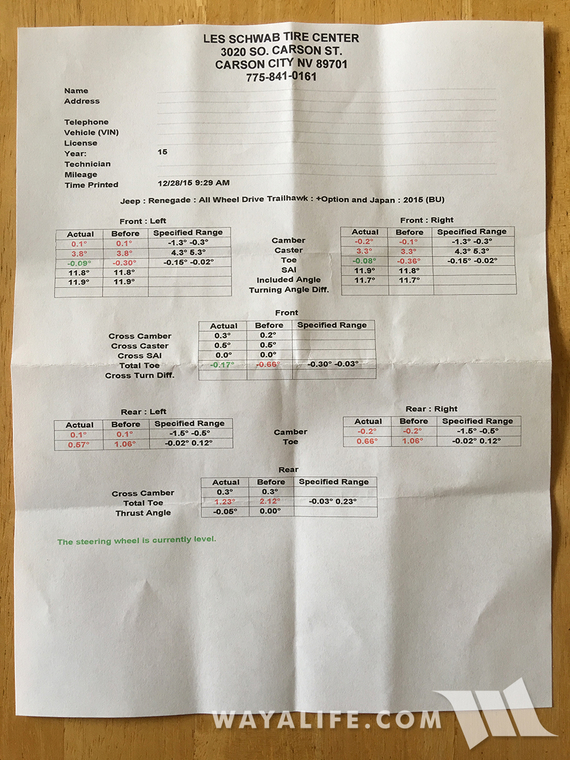 LES SCHWAB TIRE CENTER
3020 SO. CARSON ST.
CARSON CITY NV 89701
775-841-0161
Name
Address
Telephone
Vehicle (VIN)
License
Year: 15
Technician
Mileage
Time Printed 12/28/15 9:29 AM
Jeep : Renegade : All Wheel Drive Trailhawk : +Option and Japan : 2015 (BU)
Front : Left Front : Right
Actual Before Specified Range Actual Before Specified Range
0.1° 0.1° -1.3° -0.3° Camber -0.2° -0.1° -1.3° -0.3°
3.8° 3.8° 4.3° 5.3° Caster 3.3° 3.3° 4.3° 5.3°
-0.09° -0.30° -0.15° -0.02° Toe -0.08° -0.36° -0.15° -0.02°
11.8° 11.8° SAI 11.9° 11.8°
11.9° 11.9° Included Angle 11.7° 11.7°
Turning Angle Diff.
Front
Actual Before Specified Range
Cross Camber 0.3° 0.2°
Cross Caster 0.5° 0.5°
Cross SAI 0.0° 0.0°
Total Toe -0.17° -0.66° -0.30° -0.03°
Cross Turn Diff.
Rear : Left Rear : Right
Actual Before Specified Range Actual Before Specified Range
0.1° 0.1° -1.5° -0.5° Camber -0.2° -0.2° -1.5° -0.5°
0.57° 1.06° -0.02° 0.12° Toe 0.66° 1.06° -0.02° 0.12°
Rear
Actual Before Specified Range
Cross Camber 0.3° 0.3°
Total Toe 1.23° 2.12° -0.03° 0.23°
Thrust Angle -0.05° 0.00°
The steering wheel is currently level.
WAYALIFE.COM